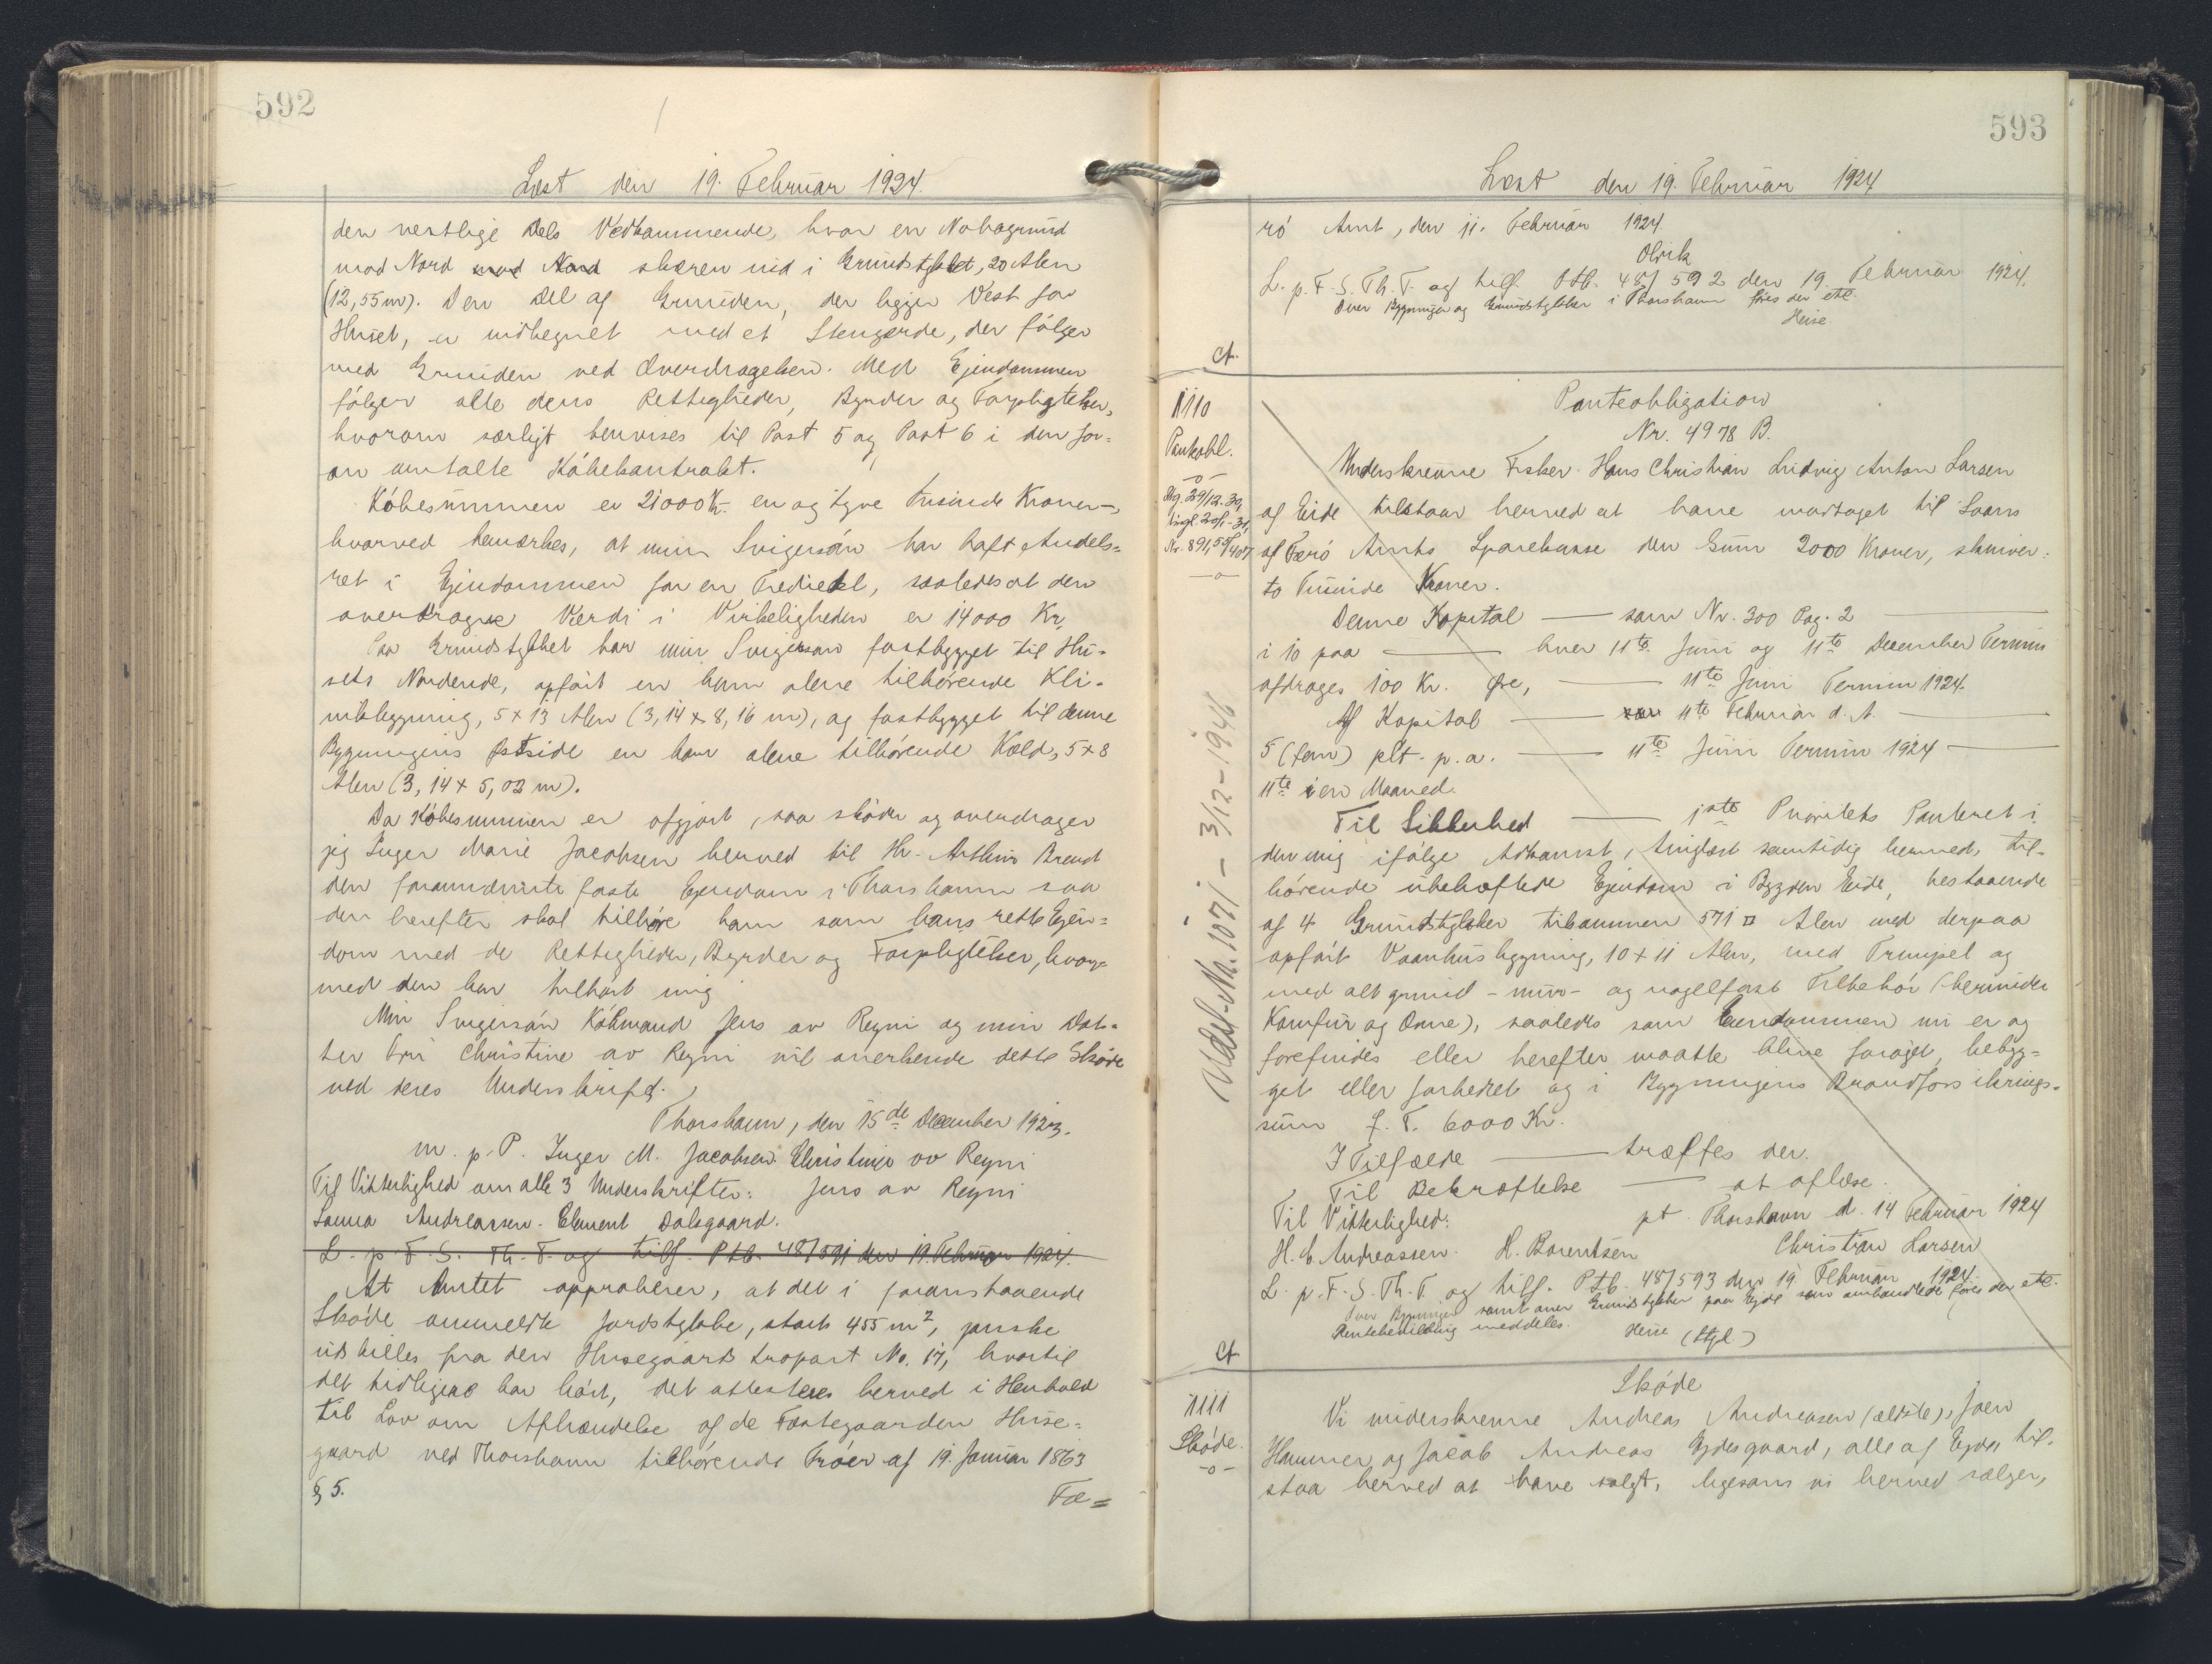 592
Læst den 19. Februar 1924.
den vestlige Dels Vedkommende, hvor en Nabogrund
mod Nord mod Nord skærer ind i Grundstykket, 20 Alen
(12,55 m). Den Del af Grunden, der ligger Vest for
Huset, er indhegnet med et Stengærde, der følger
med Grunden ved Overdragelsen. Med Ejendommen
følger alle dens Rettigheder, Byrder og Forpligtelser,
hvorom særligt henvises til Post 5 og Post 6 i den for-
an omtalte Købekontrakt.
Købesummen er 21000 Kr. en og tyve Tusinde Kroner -,
hvorved bemærkes, at min Svigersøn har haft Andels=
ret i Ejendommen for en Trediedel, saaledes at den
overdragne Værdi i Virkeligheden er 14000 Kr.
Paa Grundstykket har min Svigersøn fastbygget til Hu-
sets Nordende, opført en ham alene tilhørende Kli-
nikbygning, 5 x 13 Alen (3,14 x 8,16 m), og fastbygget til denne
Bygningens Østside en ham alene tilhørende Kæld, 5 x 8
Alen (3,14 x 5,02 m).
Da Købesummen er afgjort, saa skøder og overdrager
jeg Inger Marie Jacobsen herved til Hr. Arthur Brend
den forannævnte faste Ejendom i Thorshavn saa
den herefter skal tilhøre ham som hans rette Ejen=
dom med de Rettigheder, Byrder og Forpligtelser, hvor=
med den har tilhørt mig
Min Svigersøn Købmand Jens av Reyni og min Dat-
ter Fru Christine av Reyni vil anerkende dette Skøde
ved deres Underskrift.
Thorshavn, den 15de December 1923.
m. p. P. Inger M. Jacobsen. Christine av Reyni
Til Vitterlighed om alle 3 Underskrifter: Jens av Reyni
Sanna Andreassen. Clement Dalsgaard.
L. p. F. S. Th. T. og tilf. Ptb. 48/591 den 19. Februar 1924.
At Amtet approberer, at det i foranstaaende
Skøde ommeldte Jordstykke, stort 455 m², maaske
udskilles fra den Husegaards tropart No. 17, hvortil
det tidligere har hørt, det attesteres herved i Henhold
til Lov om Afhændelse af de Fæstegaarden Huse=
gaard ved Thorshavn tilhørende Trøer af 19. Januar 1863
§ 5.
Fæ=
593
Læst den 19. Februar 1924
rø Amt, den 11. Februar 1924.
Olrik
L. p. F. S. Th. T. og tilf. Ptb. 48/592 den 19. Februar 1924.
Over Bygninger og Grundstykker i Thorshavn føres der etc.
Heise.
Ct.
1110
Panteobl.
-o-
Nr. 891, 55/407
-o-
Udsl. Nr. 1071 - 3/12 - 1946
Panteobligation
Nr. 4978 B.
Underskrevne Fisker Hans Christian Ludvig Anton Larsen
af Eide tilstaar herved at have modtaget til Laans
af Færø Amts Sparekasse den Sum 2000 Kroner, skriver:
to Tusinde Kroner.
Denne Kapital — som Nr. 300 Pag. 2 —
i 10 paa — hver 11te Juni og 11te December Termin
afdrages 100 Kr. Øre, — 11te Juni Termin 1924.
Af Kapital — 11te Februar d. A. —
5 (fem) pCt. p. a. — 11te Juni Termin 1924 —
11te i en Maaned.
Til Sikkerhed — 1ste Prioritets Panteret i
den mig ifølge Adkomst, tinglæst samtidig hermed, til-
hørende ubehæftede Ejendom i Bygden Eide, bestaaende
af 4 Grundstykker tilsammen 571 □ Alen med derpaa
opført Vaanhusbygning, 10 x 11 Alen, med Trempel og
med alt grund- mur- og nagelfast Tilbehør (herunder
Komfur og Ovne), saaledes som Ejendommen nu er og
forefindes eller herefter maatte blive forøget, bebyg=
get eller forbedret og i Bygningens Brandforsikrings-
sum f. T. 6000 Kr.
I Tilfælde — træffes der.
Til Bekræftelse — at aflæse.
Til Vitterlighed: pt. Thorshavn d. 14 Februar 1924
H. C. Andreassen. H. Berentsen Christian Larsen
L. p. F. S. Th. T. og tilf. Ptb. 48/593 den 19 Februar 1924.
Over Bygninger samt over Grundstykker paa Ejde som omhandlede føres der etc.
Rentebevilling meddeles. Heise (Stpl.)
Ct
1111
Skøde.
-o-
Skøde
Vi underskrevne Andreas Andreasen (ældste), Joen
Hammer og Jacob Andreas Ejdesgaard, alle af Ejde, til-
staa herved at have solgt, ligesom vi herved sælger,